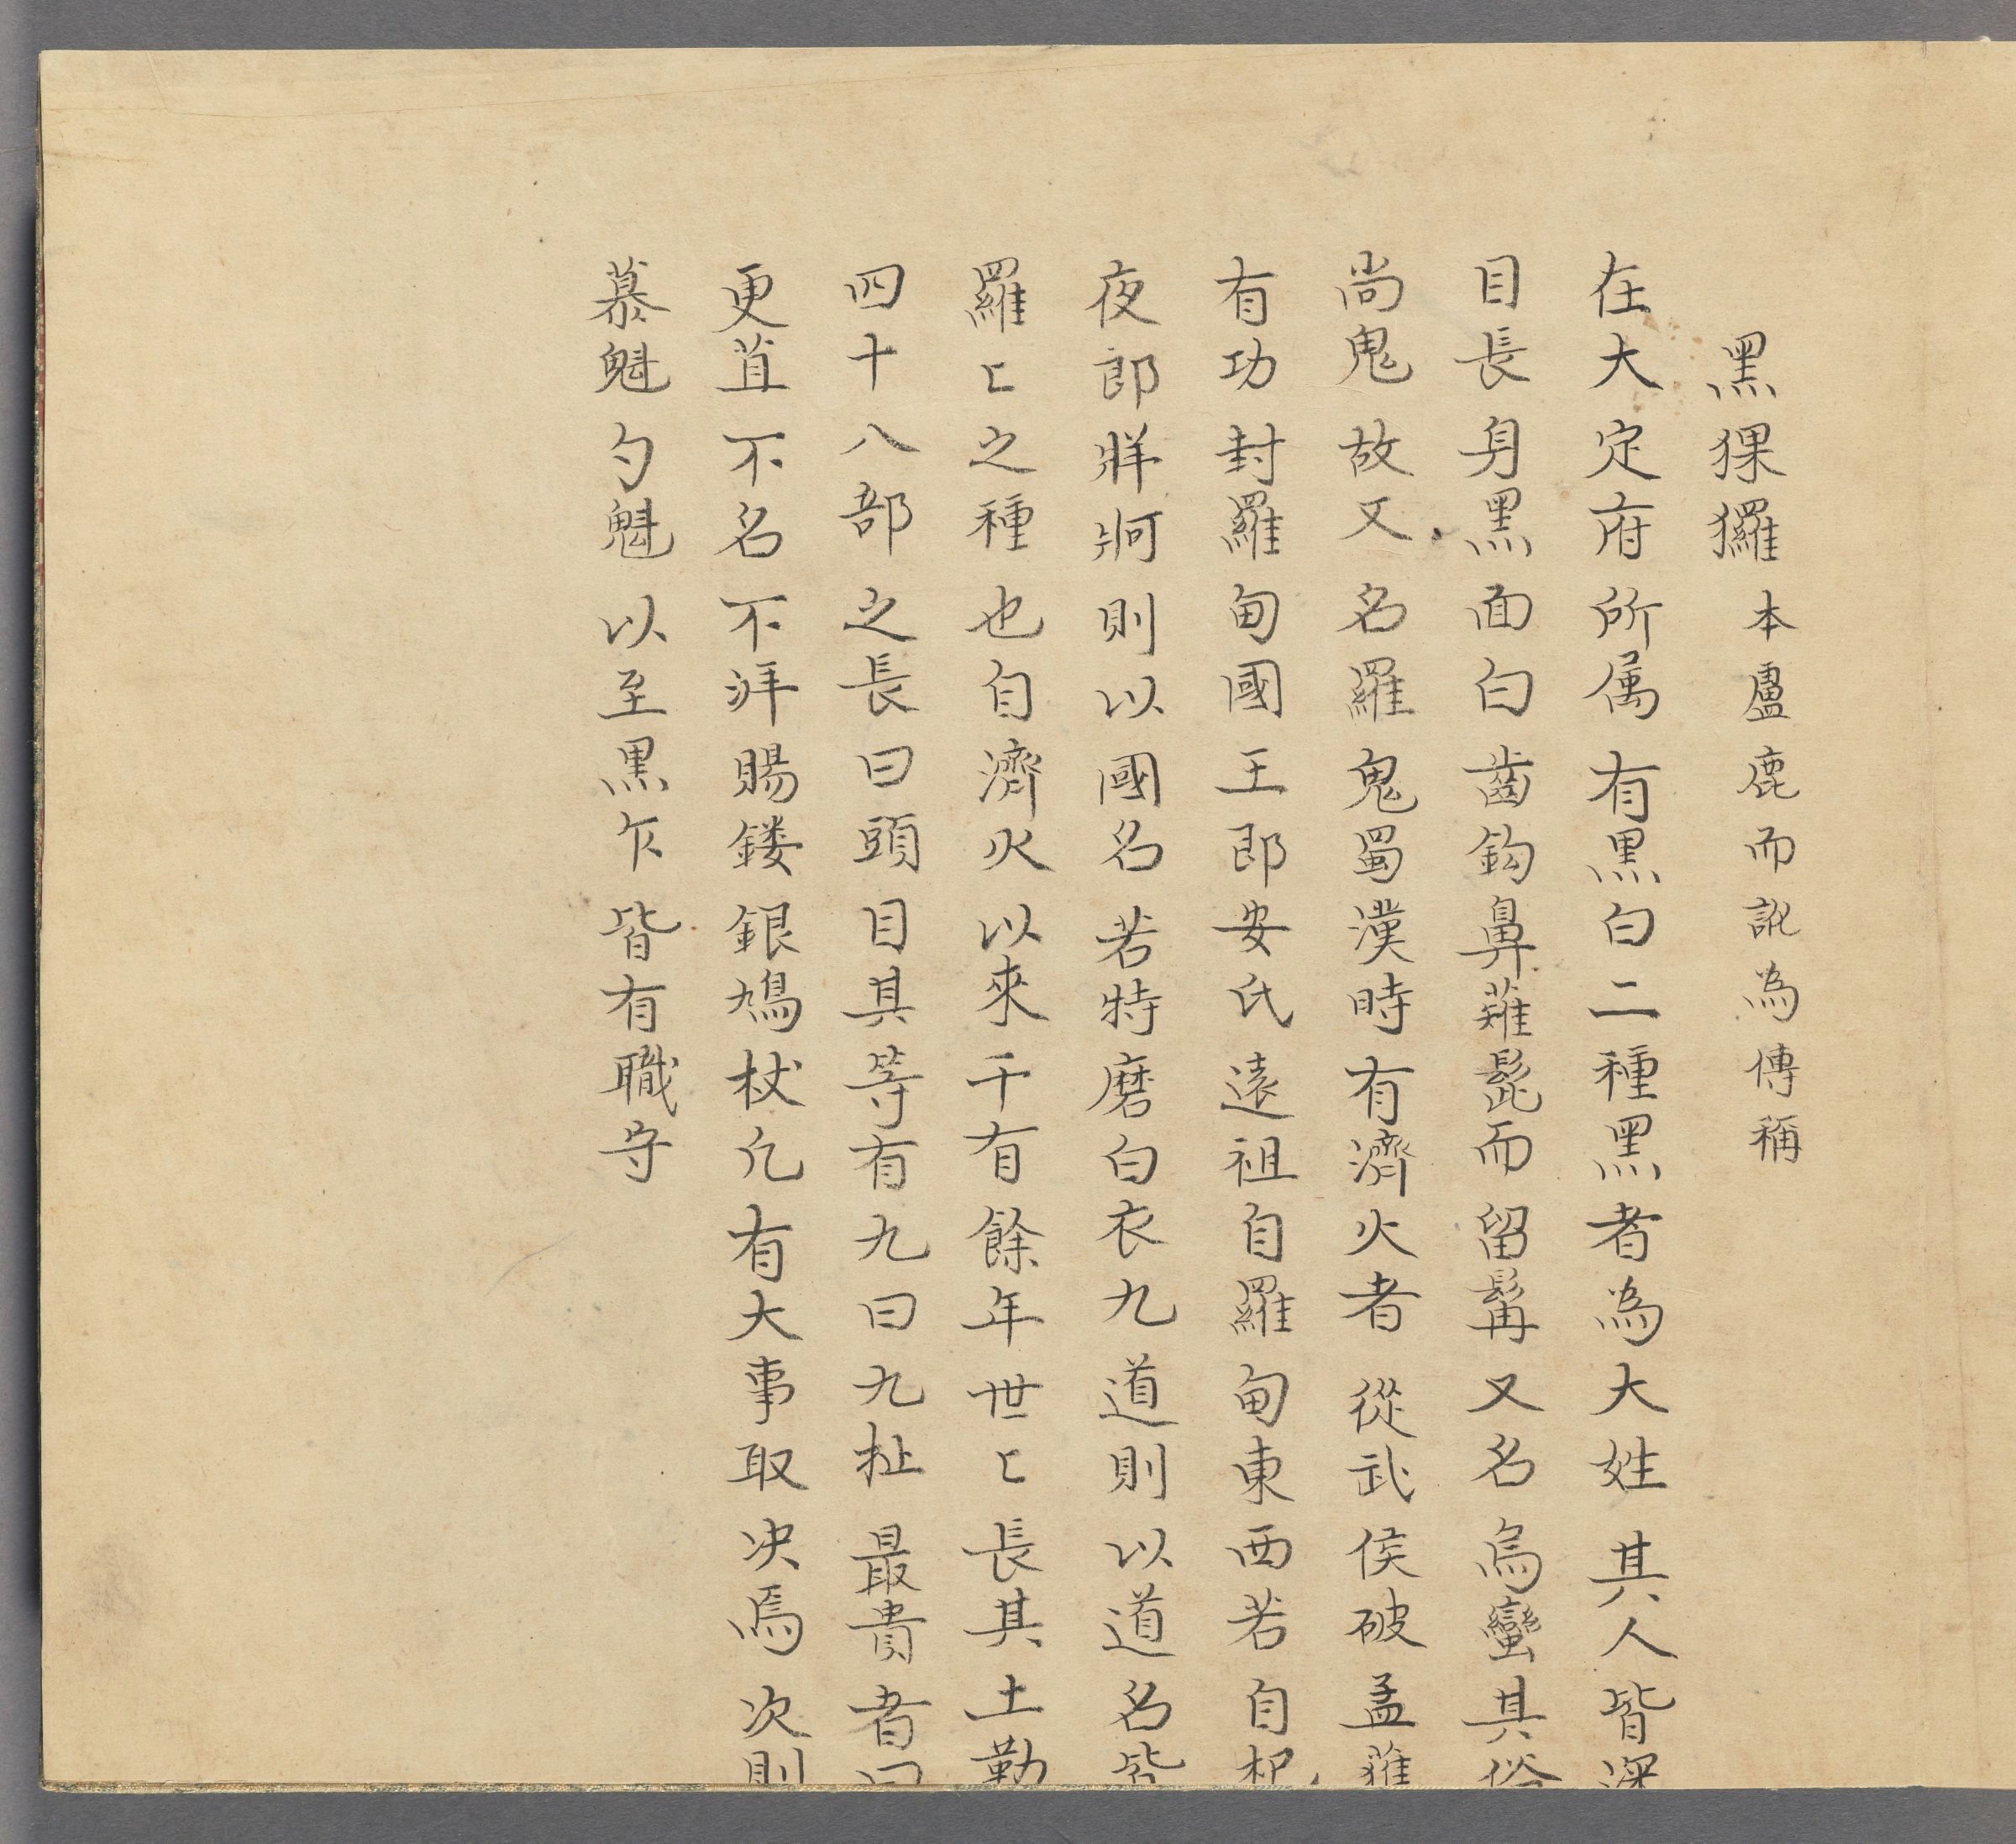 黑猓玀本盧鹿而訛為傳稱
在大定府所属有黑白二種黑者為大姓其人皆深
目長身黑面白齒鈎鼻薙髭而留髯又名烏蠻其俗
尚鬼故又名羅鬼蜀漢時有濟火者從武侯破孟獲
有功封羅甸國王即安氏遠祖自羅甸東西若自杞
夜郎牂牁則以國名若特磨白衣九道則以道名皆
羅〻之種也自濟火以來千有餘年世〻長其土勒
四十八部之長曰頭目其等有九曰九扯最貴者曰
更苴不名不拜賜鏤銀鳩杖凢有大事取决焉次則
慕魁勺魁以至黑乍皆有職守